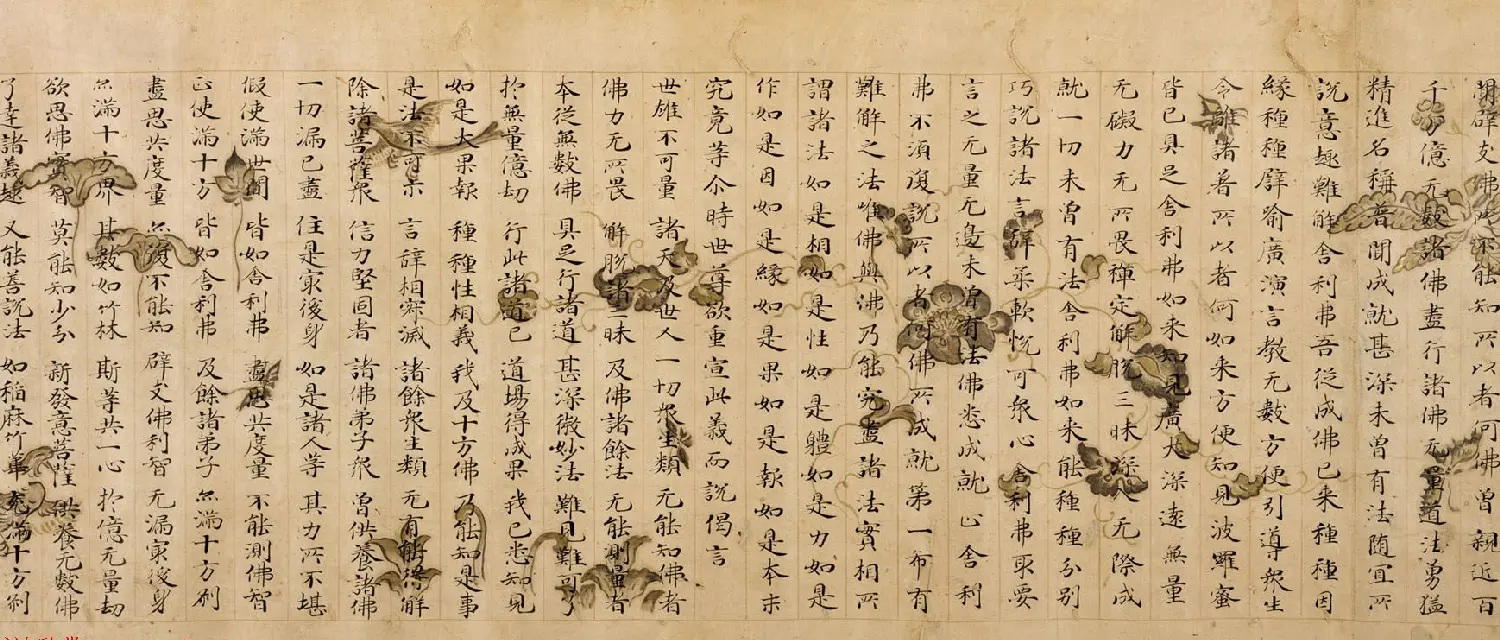 聞辟支佛所不能知所以者何佛曾親近百
千万億无數諸佛盡行諸佛无量道法勇猛
精進名稱普聞成就甚深未曾有法随宜所
說意趣難解舍利弗吾從成佛已来種種因
緣種種譬喻廣演言教无數方便引導衆生
令離諸著所以者何如来方便知見波羅蜜
皆已具足舍利弗如来知見廣大深遠無量
无礙力无所畏禪定解脫三昧深入无際成
就一切未曾有法舍利弗如来能種種分别
巧說諸法言辞柔軟悅可衆心舍利弗取要
言之无量无邊未曾有法佛悉成就止舍利
弗不須復說所以者何佛所成就第一希有
難解之法唯佛與佛乃能究盡諸法實相所
謂諸法如是相如是性如是體如是力如是
作如是因如是緣如是果如是報如是本末
究竟等尒時世尊欲重宣此義而說偈言
世雄不可量 諸天及世人 一切衆生類 无能知佛者
佛力无所畏 解脫諸三昧 及佛諸餘法 无能測量者
本從無數佛 具足行諸道 甚深微妙法 難見難可了
於無量億劫 行此諸道已 道場得成果 我已悉知見
如是大果報 種種性相義 我及十方佛 乃能知是事
是法不可示 言辞相寂滅 諸餘衆生類 无有能得解
除諸菩薩衆 信力堅固者 諸佛弟子衆 曾供養諸佛
一切漏已盡 住是冣後身 如是諸人等 其力所不堪
假使滿世間 皆如舍利弗 盡思共度量 不能測佛智
正使滿十方 皆如舍利弗 及餘諸弟子 亦滿十方刹
盡思共度量 亦復不能知 辟支佛利智 无漏冣後身
亦滿十方界 其數如竹林 斯等共一心 於億无量劫
欲思佛實智 莫能知少分 新發意菩薩 供養无數佛
了達諸義趣 又能善說法 如稻麻竹葦 充滿十方刹